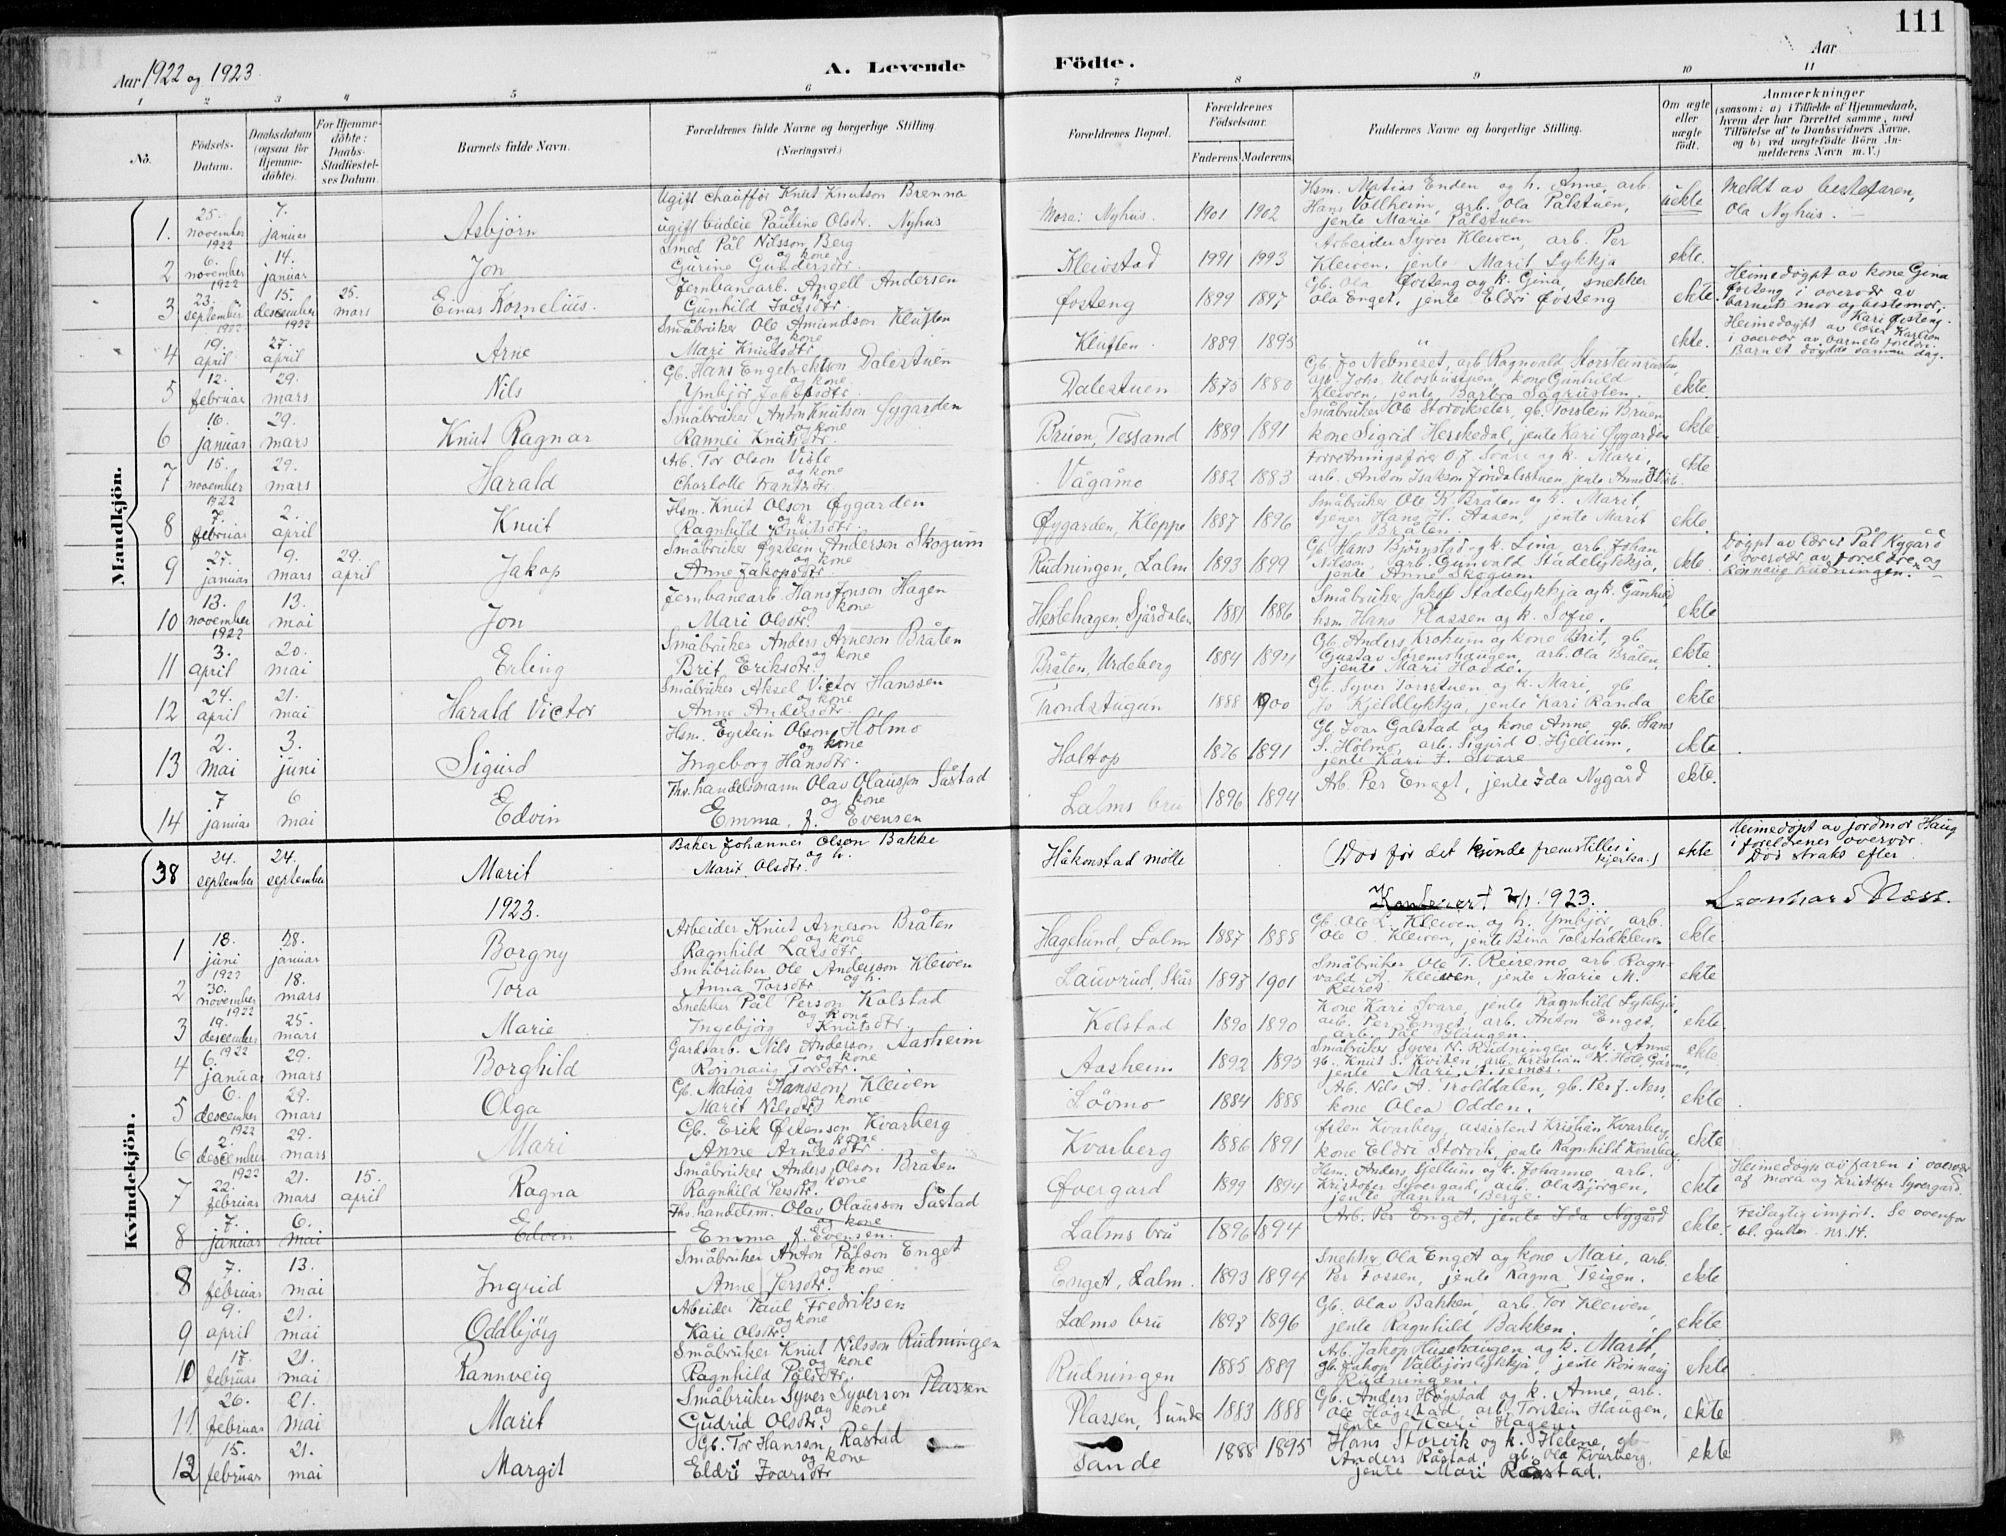 111
Aar 1922 og 1923.
A. Levende Födte.
Aar
1 2 3 4 5 6 7 8 9 10 11
No.
Födsels-Datum.
Daabsdatum (ogsaa for Hjemme-döbte).
For Hjemme-döbte: Daabs-Stadfæstel-ses Datum.
Barnets fulde Navn.
Forældrenes fulde Navne og borgerlige Stilling (Næringsvei.)
Forældrenes Bopæl.
Forældrenes Födselsaar.
Faderens Moderens
Faddernes Navne og borgerlige Stilling.
Om ægte eller uægte födt.
Anmærkninger
(saasom: a) i Tilfælde af Hjemmedaab, hvem der har forrettet samme, med Tilföielse af to Daabsvidners Navne, og b) ved uægtefödte Börn An-melderens Navn m.V.)
Mandkjön.
1. 25. november 1922 7. januar Asbjörn Ugift chauffør Knut Knutson Brenna og ugift budeie Pauline Olsdtr. Nyhus Mora: Nyhus. 1901 1902 Hsm. Matias Enden og h. Anne, arb. Hans Vollheim, arb. Ola Pålstuen, jente Marie Pålstuen uekte Meldt av bestefaren, Ola Nyhus.
2 6. november 1922 14. januar Jon Smed Pål Nilsson Berg og kone Gurine Gundersdtr. Kleivstad 1991 1993 Arbeider Syver Kleiven, arb. Per Kleiven, jente Marit Lykkja ekte.
3 23. september 1922 15. descember 1922 25. mars Einar Kornelius. Jernbanearb. Angell Andersen og k. Gunhild Iversdtr. Øosteng 1899 1897 Gb. Ola Øosteng og k. Gina, snekker Ola Enget, jente Eldri Øosteng ekte. Heimedøypt av kone Gina Øosteng i overvær av barnets mor og bestemor, Kari Øosteng.
4 19. april 27. april Arne Småbruker Ole Amundson Kluften og kone Mari Knutsdtr. Kluften. 1889 1895 " ekte. Heimedøypt av lærer Karlson i overvær av barnets foreldre. Barnet døydde samme dag.
5 12. februar 29. mars Nils Gb. Hans Engebrektson Dalestuen og kone Ymbjør Jakopsdtr. Dalestuen 1875 1880 Gb. Jo Nebneset, arb. Ragnvald Storsteinrusten, arb. Johs. Ulvsbustuen, kone Gunhild Kleiven, jente Barbro Sagrusten. ekte.
6 16. januar 29. mars Knut Ragnar Småbruker Anton Knutson Øygarden og kone Rannei Knutsdtr. Bruen, Tessand 1889 1891 Småbruker Ole Storvikseter, gb. Torstein Bruen kone Sigrid Herskedal, jente Kari Øygarden ekte.
7 15. november 1922 29. mars Harald Arb. Tor Olson Viste og kone Charlotte Frantsdtr. Vågåmo 1882 1883 Forretningsfører O. J. Svare og k. Mari, arb. Anton Isakson Jondalsstuen jente Anne ekte
8 7. februar 2. april Knut Hsm. Knut Olson Øygarden og k. Ragnhild Knutsdtr. Øygarden, Kleppe 1887 1896 Småbruker Ole K. Bråten og k. Marit, tjener Hans H. Aasen, jente Marit J. Bråten ekte.
9 27. januar 9. mars 29. april Jakop Småbruker Øystein Anderson Skogum og kone Anne Jakopsdtr. Rudningen, Lalm 1893 1899 Gb. Hans Bjørnstad og k. Lina, arb. Johan Nilsson, arb. Gunvald Stadelykkja, jente Anne Skogum ekte. Døypt av lærer Pål Nygård i overvær av foreldre og Ronnaug Rudningen.
10 13. november 1922 13. mai Jon Jernbanearb. Hans Jonson Hagen og kone Mari Olsdtr. Hestehagen, Sjårdalen 1881 1886 Småbruker Jakop Stadelykkja og k. Gunhild, hsm. Hans Plassen og k. Sofie. ekte
11 3. april 20. mai Erling Småbruker Anders Arneson Bråten og kone Brit Eriksdtr. Bråten, Urdeberg 1884 1894 Gb. Anders Krohum og kone Brit, gb. Gustav Sjøremshaugen, arb. Ola Bråten, jente Mari Hovde. ekte.
12 24. april 21. mai Harald Victor Småbruker Aksel Victor Hanssen og kone Anne Andersdtr. Trondstugun 1888 1900 Gb. Syver Torsetuen og k. Mari, gb Jo Kjeldlykkja, jente Kari Randa ekte
13 2. mai 3. juni Sigurd Hsm. Eystein Olson Holmo og kone Ingeborg Hansdtr. Haltop 1876 1891 Gb. Ivar Galstad og kone Anne, gb. Hans S. Holmo, arb. Sigurd O. Hjellum, jente Kari J. Svare ekte
14 7 januar 6 mai Edvin Thv. handelsmann Olav Olausson Såstad og kone Emma f. Evensen Lalms bru 1896 1894 Arb. Per Enget, jente Ida Nygård ekte.
Kvindekjön.
38 24. september 24. september Marit Baker Johannes Olson Bakke og h. Marit Olsdtr. Håkonstad mølle (Død før det kunde fremstilles i kjerka.) ekte Heimedøpt av jordmor Haug i foreldrenes overvær. Død straks efter
1923.
Konferert 2/1 1923. Leonhard Næss.
1 18. juni 1922 28. januar Borgny Arbeider Knut Arneson Bråten og kone Ragnhild Larsdtr. Hagelund, Lalm 1887 1888 Gb. Ole L. Kleiven og h. Ymbjör arb. Ole O. Kleiven, jente Bina Tolstadkleiven ekte
2 30. november 1922 18. mars Tora Småbruker Ole Anderson Kleiven og h. Anna Torsdtr Lauvrud, Skår 1893 1901 Småbruker Ole T. Reiremo, arb Ragn-vald A. Kleiven, jente Marie M. Reiret ekte
3 19. descember 1922 25. mars Marie Snekker Pål Person Kolstad og kone Ingebjörg Knutsdtr. Kolstad 1890 1890 Kone Kari Svare, jente Ragnhild Lykkja, arb. Per Enget, arb. Anton Enget, arb. Pål Haugen. ekte.
4 6. januar 29. mars Borghild Gardsarb. Nils Anderson Aasheim og kone Ronnaug Torsdtr. Aasheim 1892 1895 Småbruker Syver N. Rudningen og k. Anne, gb. Knut S. Kviten, arb. Kristian H. Hole, Garmo, jente Mari A. Tesnes. ekte
5 6. descember 1922 29. mars Olga Gb. Matias Hansson Kleiven og kone Marit Nilsdtr Löomo 1884 1888 Arb. Nils A. Trolddalen, gb. Per J. Ness, kone Olea Odden. ekte
6 2. descember 1922 29. mars Mari Gb. Erik Østenson Kvarberg og kone Anne Arnesdtr. Kvarberg 1886 1891 Østen Kvarberg, assistent Kristian Kvarberg, kone Eldri Storvik, jente Ragnhild Kvarberg. ekte
7 22. februar 21. mars 15. april Ragna Småbruker Anders Olson Bråten og kone Ragnhild Persdtr. Øvergard 1899 1894 Hsm. Anders Hjellum og k. Johanne, arb. Kristofer Syvergard, arb. Ola Bjørgen, jente Hanna Berge. ekte Heimedøpt av faren i overvær af mora og Kristofer Syvergard.
8 7. januar 6. mai Edvin Thv. handelsm. Olav Olausson Såstad og kone Emma f. Evensen. Lalms bru 1896 1894 Arb. Per Enget, jente Ida Nygård ekte. Feilagtig innført. Se ovenfor bl. gutter nr. 14.
8 7. februar 13. mai Ingrid Småbruker Anton Pålson Enget og kone Anne Persdtr. Enget, Lalm. 1893 1894 Snekker Ola Enget og kone Mari, arb. Per Fossen, jente Ragna Teigen. ekte
9 9. april 21. mai Oddbjörg Abeider Paul Fredriksen og kone Kari Olsdtr. Lalms bru 1893 1896 Gb. Olav Bakken, arb. Tor Kleiven, jente Ragnhild Bakken. ekte
10 17. februar 21. mai Rannveig Småbruker Knut Nilsson Rudningen og kone Ragnhild Pålsdtr. Rudningen 1885 1889 Arb. Jakop Husehaugen og k. Marit, gb. Jakop Vallbjørslykkja, jente Ronnaug Rudningen. ekte
11 26. februar 21. mai Marit Småbruker Syver Syverson Plassen og kone Gudrid Olsdtr. Plassen, Sunde 1883 1888 Gb. Anders Høgstad og k. Anne, arb. Ole Høgstad, arb Torstein Haugen, jente Kari Hagen ekte
12 15. februar 21. mai Margit Gb. Tor Hanson Råstad og kone Eldri Ivarsdtr Sande 1888 1895 Hans Storvik og k. Helene, gb Anders Råstad, gb. Ola Kvarberg, jente Mari Råstad. ekte